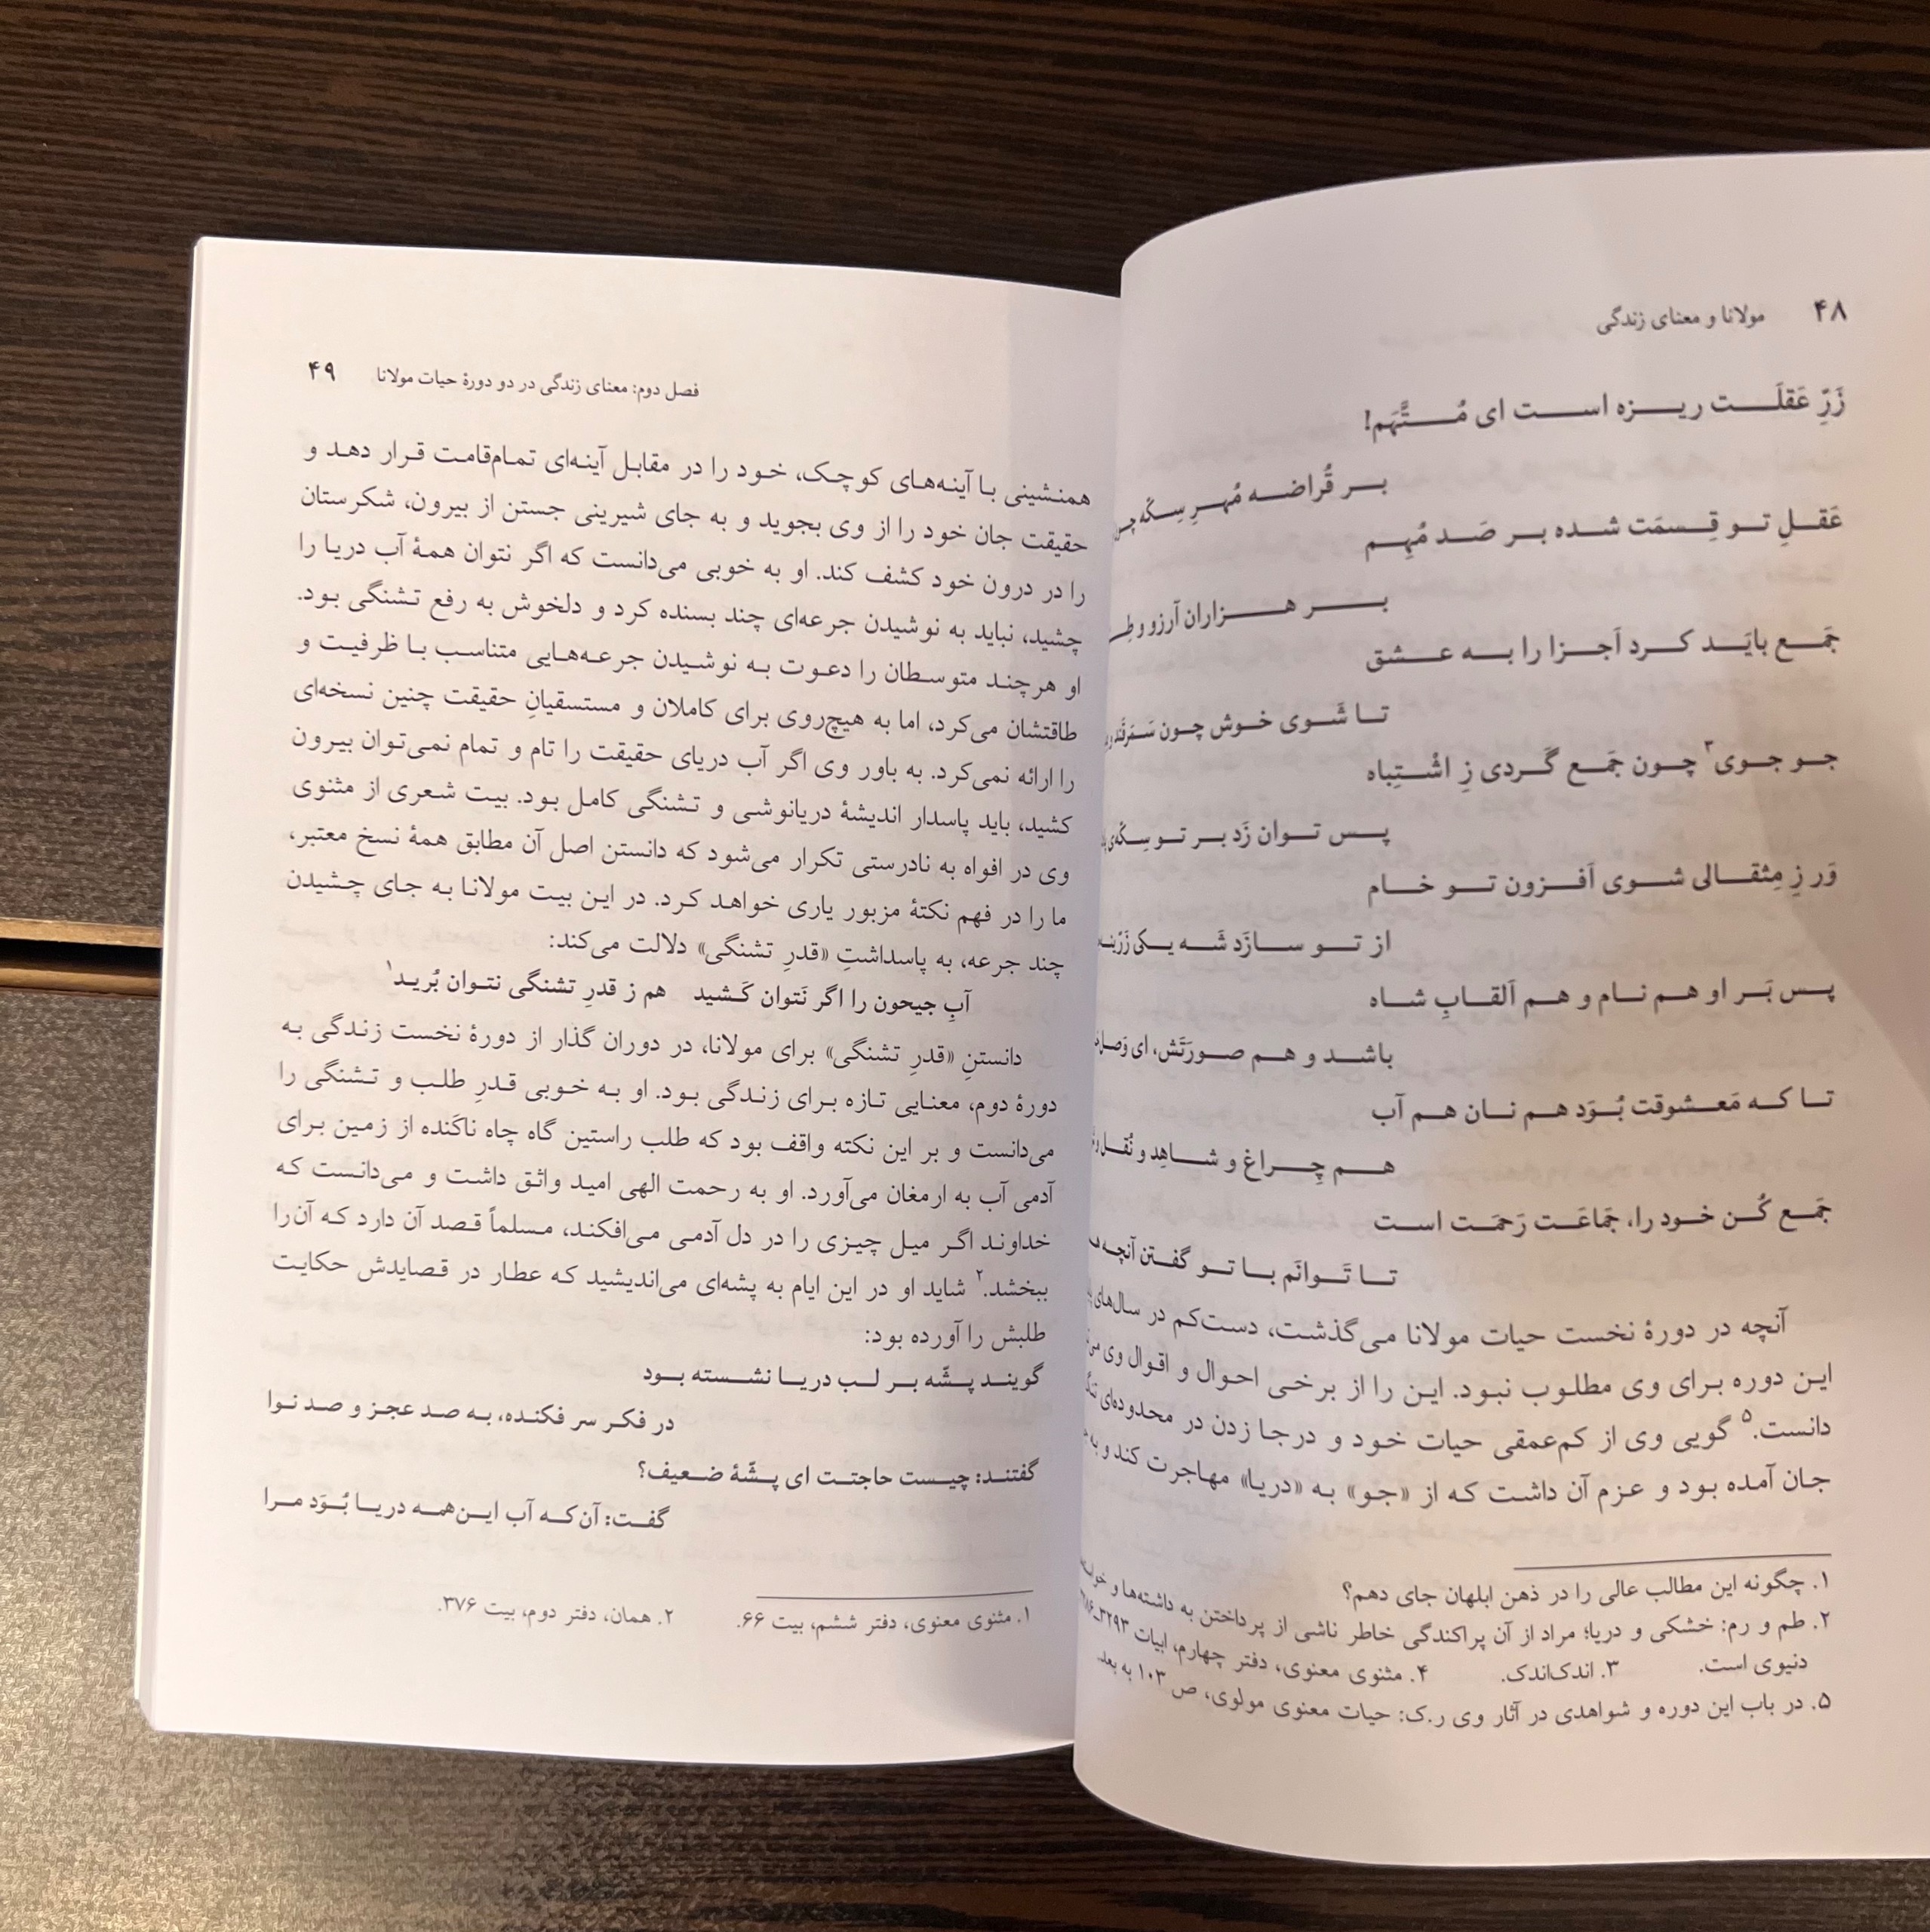 ۴۸ مولانا و معنای زندگی
زَرِّ عَقلَـت ریـزه اسـت ای مُـتَّهَم!
بـر قُراضـه مُهـرِ سِـکّه
عَقـلِ تـو قِـسمَت شـده بـر صَـد مُهِـم
بـر هـزاران آرزو و
جَمـع بایَـد کـرد اَجـزا را بـه عـشق
تـا شَـوی خـوش چـون سَـمَرقَند
جـو جـوی۳ چـون جَمـع گَـردی زِ اشـتِباه
پـس تـوان زَد بـر تـو سِـکّه‌ی
وَر زِ مِثقـالی شـوی اَفـزون تـو خـام
از تـو سـازَد شَـه یـکی
پـس بَـر او هـم نـام و هـم اَلقـابِ شـاه
باشـد و هـم صـورَتَش، ای
تـا کـه مَعـشوقت بُـوَد هـم نـان هـم آب
هـم چِـراغ و شـاهِد و نُقـل
جَمـع کُـن خـود را، جَماعَـت رَحمَـت اسـت
تـا تَـوانَم بـا تـو گفـتن آنچـه
آنچه در دورهٔ نخست حیات مولانا می‌گذشت، دست‌کم در سال‌های
این دوره برای وی مطلوب نبود. این را از برخی احوال و اقوال وی
دانست.۵ گویی وی از کم‌عمقی حیات خود و درجا زدن در محدوده‌ای
جان آمده بود و عزم آن داشت که از «جو» به «دریا» مهاجرت کند و به
۱. چگونه این مطالب عالی را در ذهن ابلهان جای دهم؟
۲. طم و رم: خشکی و دریا؛ مراد از آن پراکندگی خاطر ناشی از پرداختن به داشته‌ها و
دنیوی است. ۳. اندک‌اندک. ۴. مثنوی معنوی، دفتر چهارم، ابیات
۵. در باب این دوره و شواهدی در آثار وی ر.ک: حیات معنوی مولوی، ص ۱۰۳ به بعد.
فصل دوم: معنای زندگی در دو دورهٔ حیات مولانا ۴۹
همنشینی با آینه‌های کوچک، خود را در مقابل آینه‌ای تمام‌قامت قرار دهد و
حقیقت جان خود را از وی بجوید و به جای شیرینی جستن از بیرون، شکرستان
را در درون خود کشف کند. او به خوبی می‌دانست که اگر نتوان همهٔ آب دریا را
چشید، نباید به نوشیدن جرعه‌ای چند بسنده کرد و دلخوش به رفع تشنگی بود.
او هرچند متوسطان را دعوت به نوشیدن جرعه‌هایی متناسب با ظرفیت و
طاقتشان می‌کرد، اما به هیچ‌روی برای کاملان و مستسقیانِ حقیقت چنین نسخه‌ای
را ارائه نمی‌کرد. به باور وی اگر آب دریای حقیقت را تام و تمام نمی‌توان بیرون
کشید، باید پاسدار اندیشهٔ دریانوشی و تشنگی کامل بود. بیت شعری از مثنوی
وی در افواه به نادرستی تکرار می‌شود که دانستن اصل آن مطابق همهٔ نسخ معتبر،
ما را در فهم نکتهٔ مزبور یاری خواهد کرد. در این بیت مولانا به جای چشیدن
چند جرعه، به پاسداشتِ «قدرِ تشنگی» دلالت می‌کند:
آبِ جیحون را اگر نَتوان کَشید هم ز قدرِ تشنگی نتوان بُرید۱
دانستنِ «قدرِ تشنگی» برای مولانا، در دوران گذار از دورهٔ نخست زندگی به
دورهٔ دوم، معنایی تازه برای زندگی بود. او به خوبی قدرِ طلب و تشنگی را
می‌دانست و بر این نکته واقف بود که طلب راستین گاه چاه ناکَنده از زمین برای
آدمی آب به ارمغان می‌آورد. او به رحمت الهی امید واثق داشت و می‌دانست که
خداوند اگر میل چیزی را در دل آدمی می‌افکند، مسلماً قصد آن دارد که آن‌را
ببخشد.۲ شاید او در این ایام به پشه‌ای می‌اندیشید که عطار در قصایدش حکایت
طلبش را آورده بود:
گوینـد پـشّه بـر لـب دریـا نشـسته بـود
در فکـر سر فکنـده، بـه صـد عجـز و صـد نـوا
گفتنـد: چیـست حاجتـت ای پـشّهٔ ضـعیف؟
گفـت: آن‌کـه آب ایـن‌همـه دریـا بُـوَد مـرا
۱. مثنوی معنوی، دفتر ششم، بیت ۶۶. ۲. همان، دفتر دوم، بیت ۳۷۶.